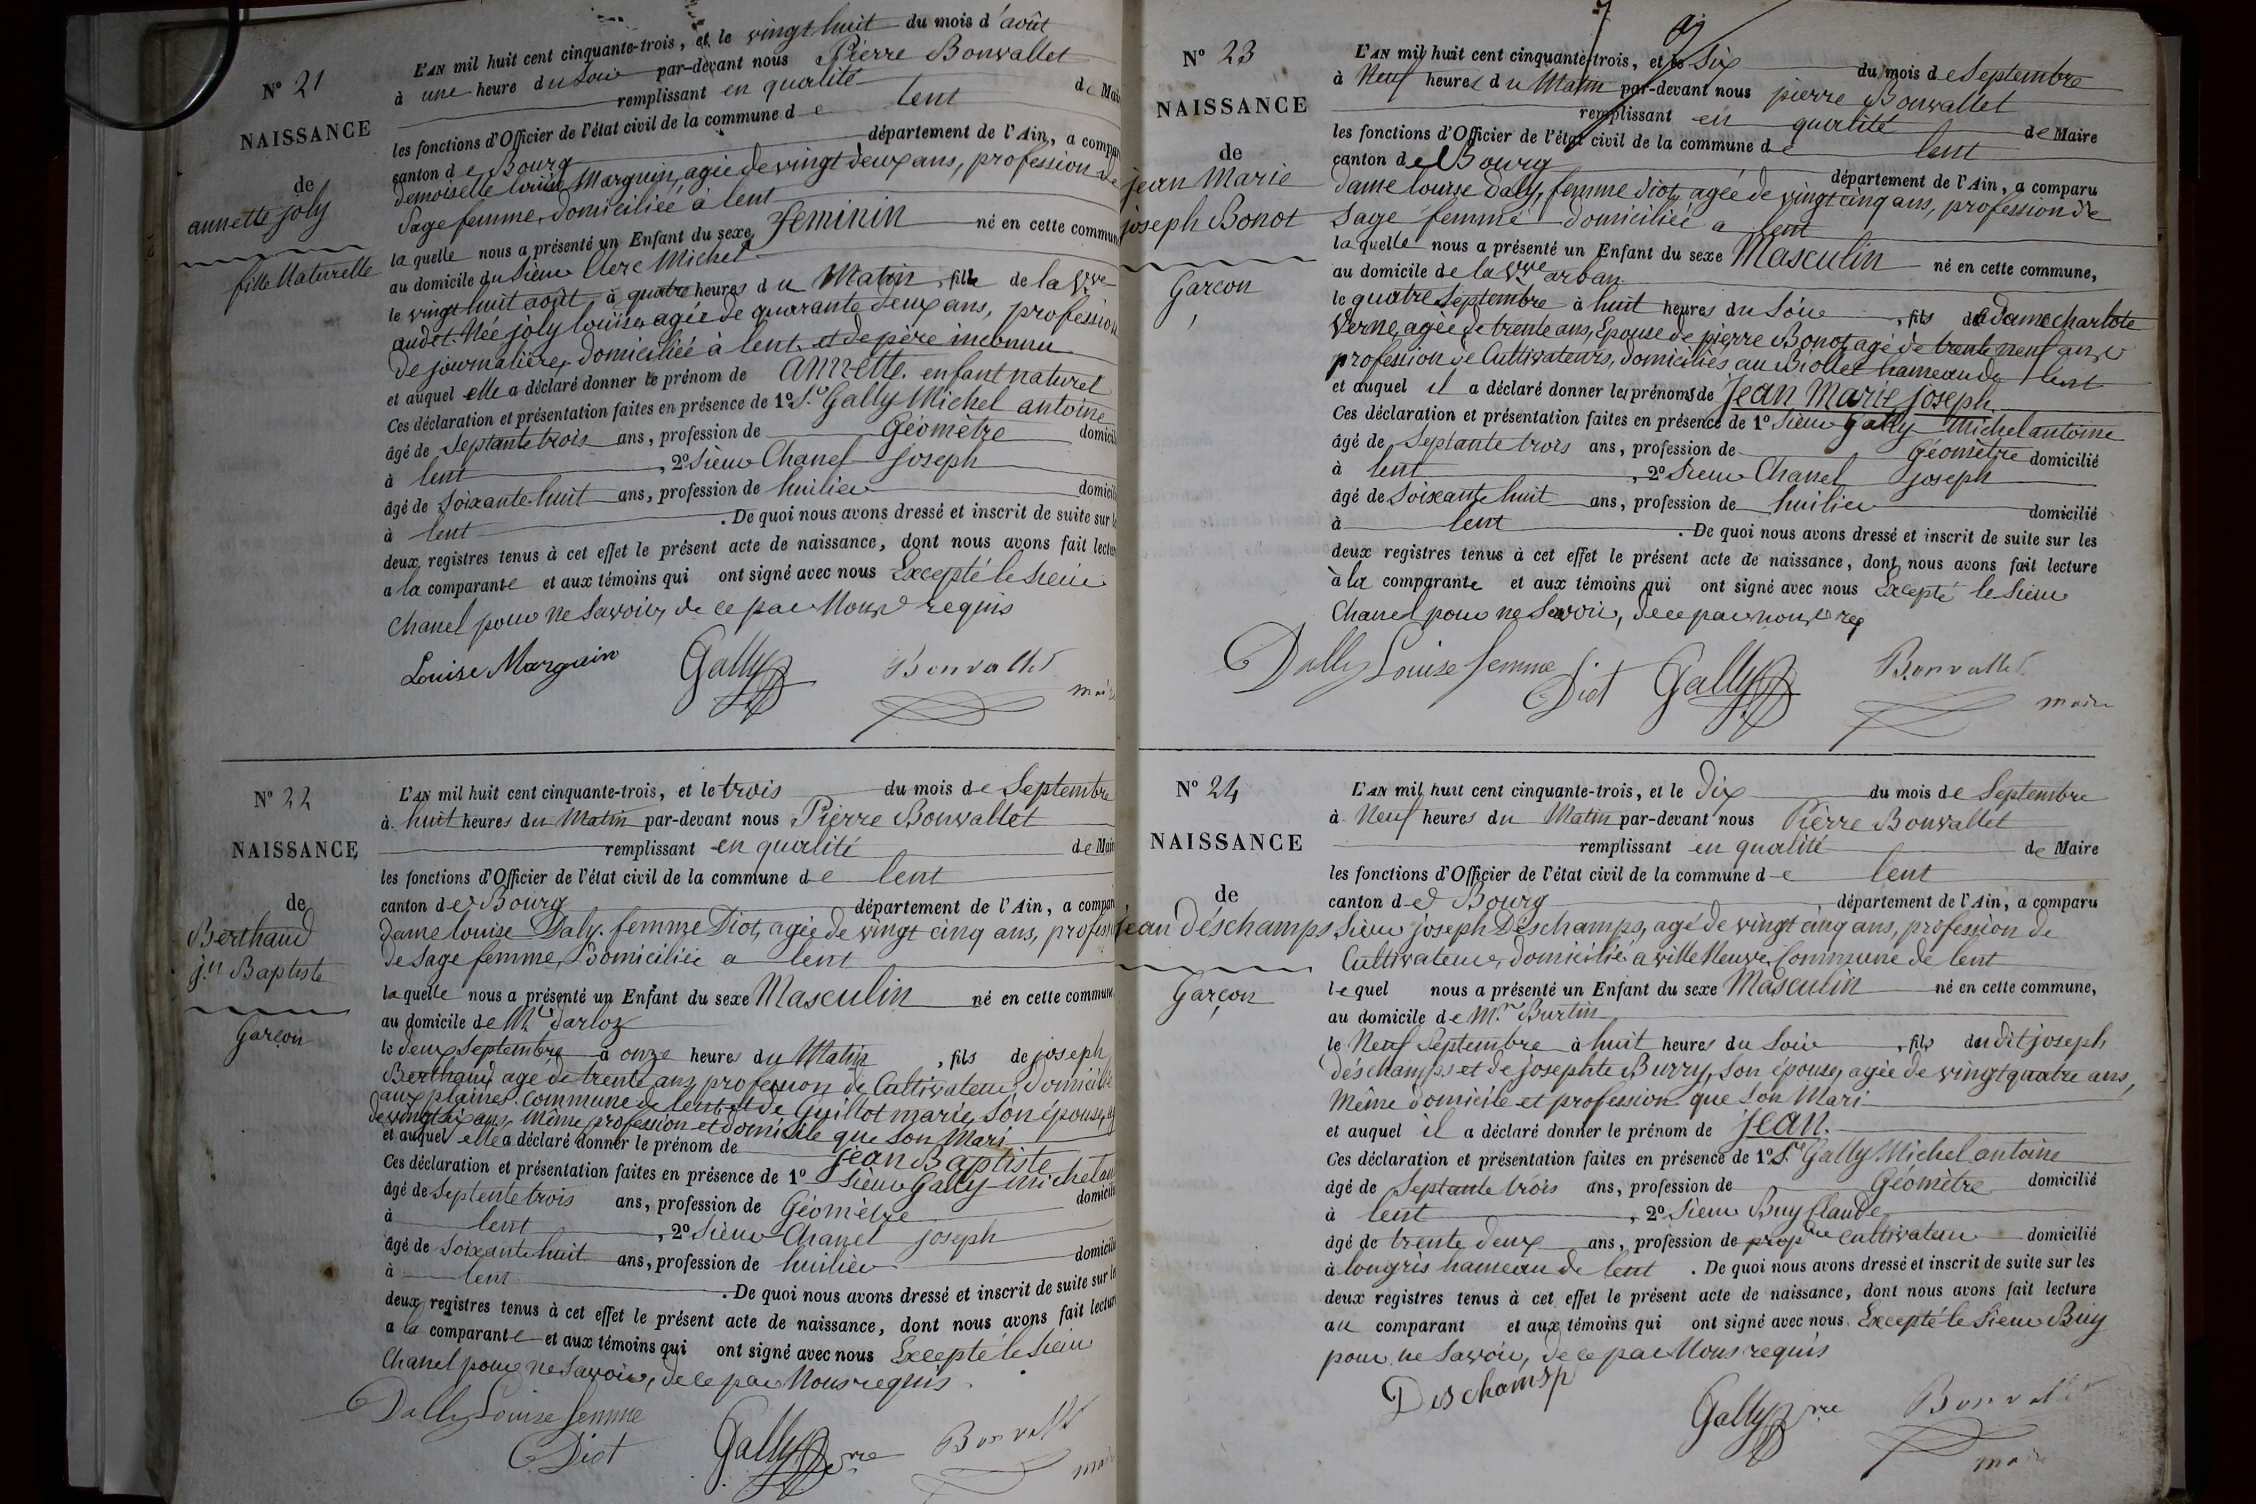 N° 21
NAISSANCE
de
annette joly
fille Naturelle
L'AN mil huit cent cinquante-trois, et le vingt huit du mois d'août
à une heure du Soir par-devant nous Pierre Bonvallet
remplissant en qualité de Mai
les fonctions d'Officier de l'état civil de la commune de lent
canton de Bourg département de l'Ain, a compar
demoiselle louise Marguin, agée de vingt deux ans, profession de
Sage femme, domiciliée à lent
la quelle nous a présenté un Enfant du sexe feminin né en cette commun
au domicile du Sieur Clerc Michel
le vingt huit août, à quatre heures du Matin, fille de la Vve
audet. Née joly louise agée de quarante deux ans, profession
de journalière, domiciliée à lent, et de père inconnu
et auquel elle a déclaré donner le prénom de annette. enfant naturel
Ces déclaration et présentation faites en présence de 1° Sr Gally Michel antoine
âgé de Septante trois ans, profession de Géomètre domicil
à lent, 2° Sieur Chanel joseph
âgé de Soixante huit ans, profession de huilier domicil
à lent. De quoi nous avons dressé et inscrit de suite sur l
deux registres tenus à cet effet le présent acte de naissance, dont nous avons fait lectur
a la comparante et aux témoins qui ont signé avec nous Excepté le Sieur
Chanel pour ne Savoir, de ce par Nous requis
Louise Marguin Gally Bonvallet
mair
N° 22
NAISSANCE
de
Berthaud
jn Baptiste
Garçon
L'AN mil huit cent cinquante-trois, et le trois du mois de Septembre
à huit heures du Matin par-devant nous Pierre Bonvallet
remplissant en qualité de Mair
les fonctions d'Officier de l'état civil de la commune de lent
canton de Bourg département de l'Ain, a compar
dame louise Daly. femme Diot, agée de vingt cinq ans, profess
de Sage femme, Domiciliée a lent
la quelle nous a présenté un Enfant du sexe Masculin né en cette commune
au domicile de darloz
le deux Septembre à onze heures du Matin, fils de joseph
Berthaud agé de trente ans, profession de Cultivateur, domicilié
aux plaines. Commune de lent et de Guillot marie, Son épouse, ag
de vingt six ans, même profession et domicile que Son Mari
et auquel elle a déclaré donner le prénom de jean Baptiste
Ces déclaration et présentation faites en présence de 1° Sieur Gally Michel an
âgé de Septente trois ans, profession de Géomètre domicili
à lent, 2° Sieur Chanel joseph
âgé de Soixante huit ans, profession de huilier domicili
à lent. De quoi nous avons dressé et inscrit de suite sur le
deux registres tenus à cet effet le présent acte de naissance, dont nous avons fait lectur
a la comparante et aux témoins qui ont signé avec nous Excepté le Sieur
Chanel pour ne Savoir, de ce par Nous requis.
Dally Louise femme
Diot Gally Bonvallet
mai
N° 23
NAISSANCE
de
jean Marie
joseph Bonot
Garcon
L'AN mil huit cent cinquante-trois, et le Six du mois de Septembre
à Neuf heures du Matin par-devant nous pierre Bonvallet
remplissant en qualité de Maire
les fonctions d'Officier de l'état civil de la commune de lent
canton de Bourg département de l'Ain, a comparu
dame louise Daly, femme diot, agée de vingt cinq ans, profession de
Sage femme domiciliée a lent
la quelle nous a présenté un Enfant du sexe Masculin né en cette commune,
au domicile de la Vve arban
le quatre Septembre à huit heures du Soir, fils de dame charlote
Verne, agée de trente ans, Epouse de pierre Bonot, agé de trente neuf ans,
profession de Cultivateurs, domiciliés au Biollet hameau de lent
et auquel il a déclaré donner les prénoms de jean Marie joseph.
Ces déclaration et présentation faites en présence de 1° Sieur Gally Michel antoine
âgé de Septante trois ans, profession de Géomètre domicilié
à lent, 2° Sieur Chanel joseph
âgé de Soixante huit ans, profession de huilier domicilié
à lent. De quoi nous avons dressé et inscrit de suite sur les
deux registres tenus à cet effet le présent acte de naissance, dont nous avons fait lecture
à la comparante et aux témoins qui ont signé avec nous Excepté le Sieur
Chanel pour ne Savoir, de ce par nous req
Dally Louise femme
Diot Gally Bonvallet
maire
N° 24
NAISSANCE
de
jean déschamps
Garçon
L'AN mil huit cent cinquante-trois, et le Dix du mois de Septembre
à Neuf heures du Matin par-devant nous Pierre Bonvallet
remplissant en qualité de Maire
les fonctions d'Officier de l'état civil de la commune de lent
canton de Bourg département de l'Ain, a comparu
Sieur joseph Déschamps, agé de vingt cinq ans, profession de
Cultivateur, domicilié a ville Neuve, Commune de lent
le quel nous a présenté un Enfant du sexe Masculin né en cette commune,
au domicile de Mr Burtin
le Neuf Septembre à huit heures du Soir, fils du dit joseph
déschamps et de josephte Burry, Son épouse, agée de vingt quatre ans,
Même domicile et profession que Son Mari
et auquel il a déclaré donner le prénom de jean.
Ces déclaration et présentation faites en présence de 1° Sr Gally Michel antoine
âgé de Septante trois ans, profession de Géomètre domicilié
à lent, 2° Sieur Buy Claude
âgé de trente deux ans, profession de propre cultivateur domicilié
à longris hameau de lent. De quoi nous avons dressé et inscrit de suite sur les
deux registres tenus à cet effet le présent acte de naissance, dont nous avons fait lecture
au comparant et aux témoins qui ont signé avec nous Excepté le Sieur Buy
pour ne Savoir, de ce par Nous requis
Deschamsp Gally Bonvallet